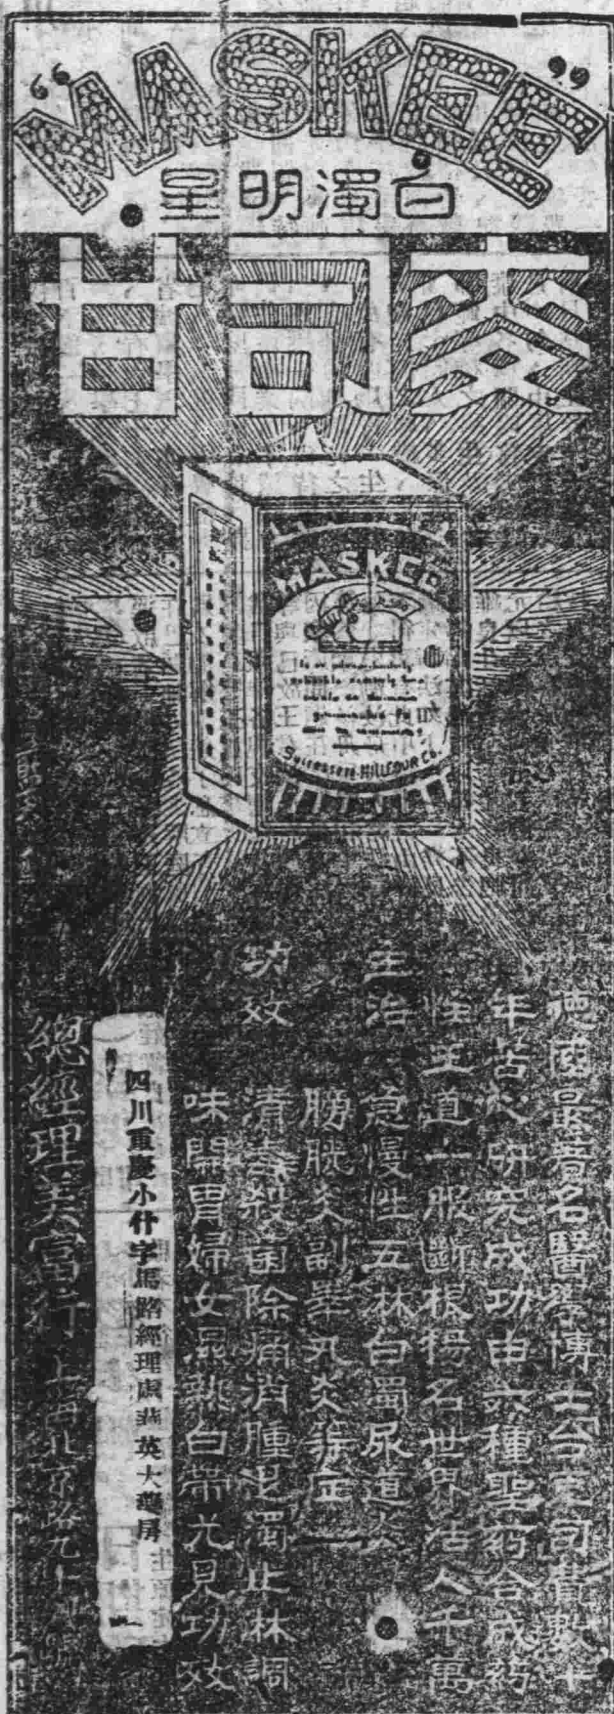 "MASKEE"
白濁明星
麥司甘
MASKEE
Successeté HILLCOUR Co.
德國最著名醫學博士台克司費數十
年苦心研究成功由六種聖葯合成葯
性王道一服斷根揚名世界活人千萬
主治 急慢性五林白蜀尿道炎
膀胱炎副睾丸炎等症
功效 清毒殺菌除痛消腫退濁止林調
味開胃婦女濕熱白帶尤見功效
四川重慶小什字馬路經理處 英大藥房
總經理美富行 上海北京路九十 號